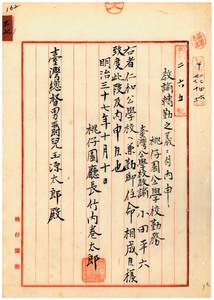 教諭轉勤之義ニ付内申
桃仔園公學校勤務
臺灣公學校教諭 小田平六
右者仁和公學校ヘ兼勤御任命相成且様
致度此段及内申且也
明治三十七年十月十日
桃仔園廳長竹内巻太郎
臺灣總督男爵兒玉源太郎殿
桃仔園廳